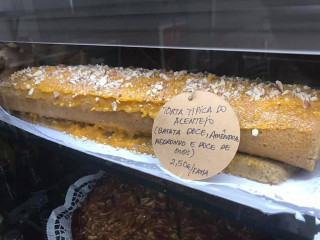 TORTA TÍPICA DO
ALENTEJO
(BATATA DOCE, AMÊNDOA,
MEDRONHO E DOCE DE
OVOS)
2,50€/FATIA